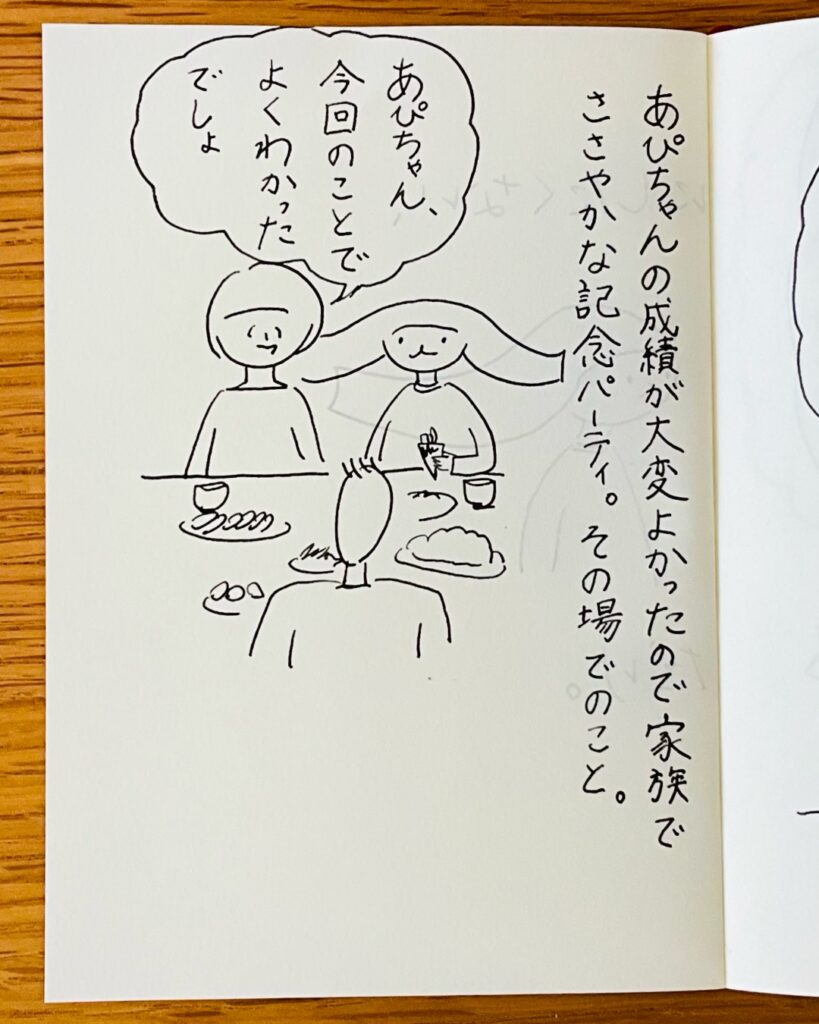 あぴちゃんの成績が大変よかったので家族で
ささやかな記念パーティ。その場でのこと。
あぴちゃん、
今回のことで
よくわかった
でしょ